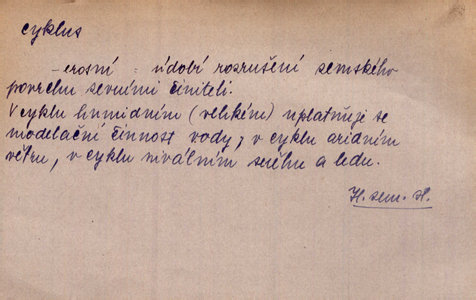 cyklus
-erosní = údobí rozrušení zemského
povrchu zevními činiteli.
V cyklu humidním (velikém) uplatňuje se
modelační činnost vody, v cyklu aridním
větru, v cyklu niválním sněhu a ledu.
H. zem. H.